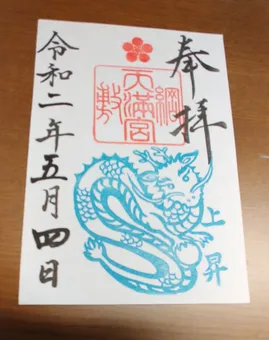 奉拝
綱敷
天満宮
上昇
令和二年五月四日